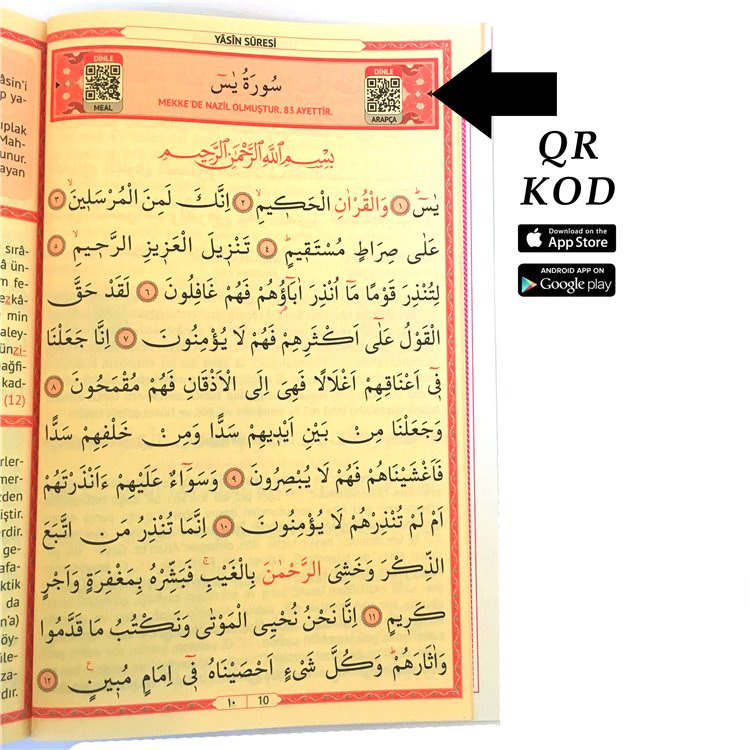 YÂSÎN SÛRESİ
DİNLE
MEAL
سُورَةُ يٰسٓ
MEKKE'DE NAZİL OLMUŞTUR. 83 AYETTİR.
DİNLE
ARAPÇA
بِسْمِ اللّٰهِ الرَّحْمٰنِ الرَّحِيمِ
يٰسٓ ۚ ﴿١﴾ وَالْقُرْاٰنِ الْحَك۪يمِۙ ﴿٢﴾ اِنَّكَ لَمِنَ الْمُرْسَل۪ينَۙ ﴿٣﴾
عَلٰى صِرَاطٍ مُسْتَق۪يمٍۜ ﴿٤﴾ تَنْز۪يلَ الْعَز۪يزِ الرَّح۪يمِۙ ﴿٥﴾
لِتُنْذِرَ قَوْمًا مَٓا اُنْذِرَ اٰبَٓاؤُ۬هُمْ فَهُمْ غَافِلُونَ ﴿٦﴾ لَقَدْ حَقَّ
الْقَوْلُ عَلٰٓى اَكْثَرِهِمْ فَهُمْ لَا يُؤْمِنُونَ ﴿٧﴾ اِنَّا جَعَلْنَا
ف۪ٓي اَعْنَاقِهِمْ اَغْلَالًا فَهِيَ اِلَى الْاَذْقَانِ فَهُمْ مُقْمَحُونَ ﴿٨﴾
وَجَعَلْنَا مِنْ بَيْنِ اَيْد۪يهِمْ سَدًّا وَمِنْ خَلْفِهِمْ سَدًّا
فَاَغْشَيْنَاهُمْ فَهُمْ لَا يُبْصِرُونَ ﴿٩﴾ وَسَوَٓاءٌ عَلَيْهِمْ ءَاَنْذَرْتَهُمْ
اَمْ لَمْ تُنْذِرْهُمْ لَا يُؤْمِنُونَ ﴿١٠﴾ اِنَّمَا تُنْذِرُ مَنِ اتَّبَعَ
الذِّكْرَ وَخَشِيَ الرَّحْمٰنَ بِالْغَيْبِۚ فَبَشِّرْهُ بِمَغْفِرَةٍ وَاَجْرٍ
كَر۪يمٍ ﴿١١﴾ اِنَّا نَحْنُ نُحْيِي الْمَوْتٰى وَنَكْتُبُ مَا قَدَّمُوا
وَاٰثَارَهُمْۜ وَكُلَّ شَيْءٍ اَحْصَيْنَاهُ ف۪ٓي اِمَامٍ مُب۪ينٍ۟ ﴿١٢﴾
١٠ 10
QR
KOD
Download on the
App Store
ANDROID APP ON
Google play
(12)